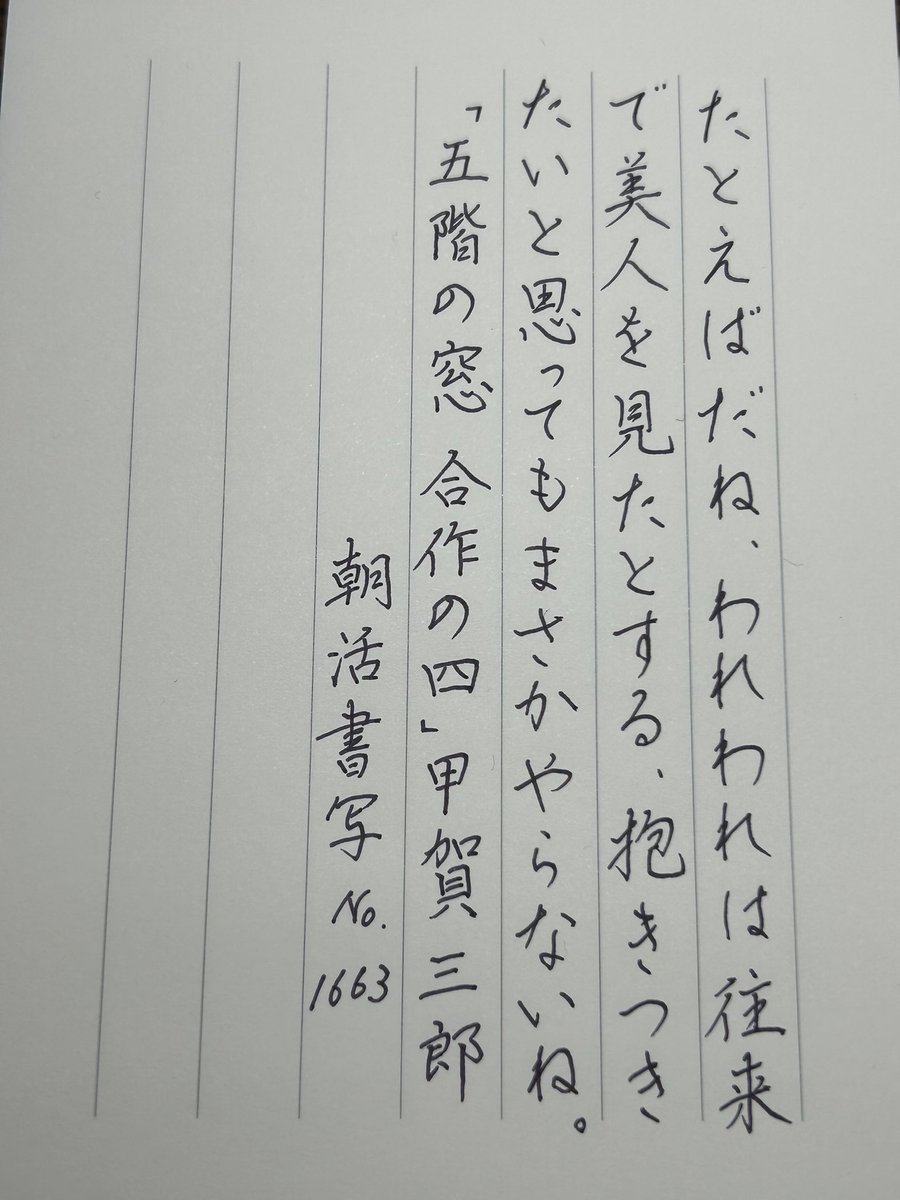 たとえばだね、われわれは往来
で美人を見たとする、抱きつき
たいと思ってもまさかやらないね。
「五階の窓 合作の四」甲賀三郎
朝活書写 No.1663